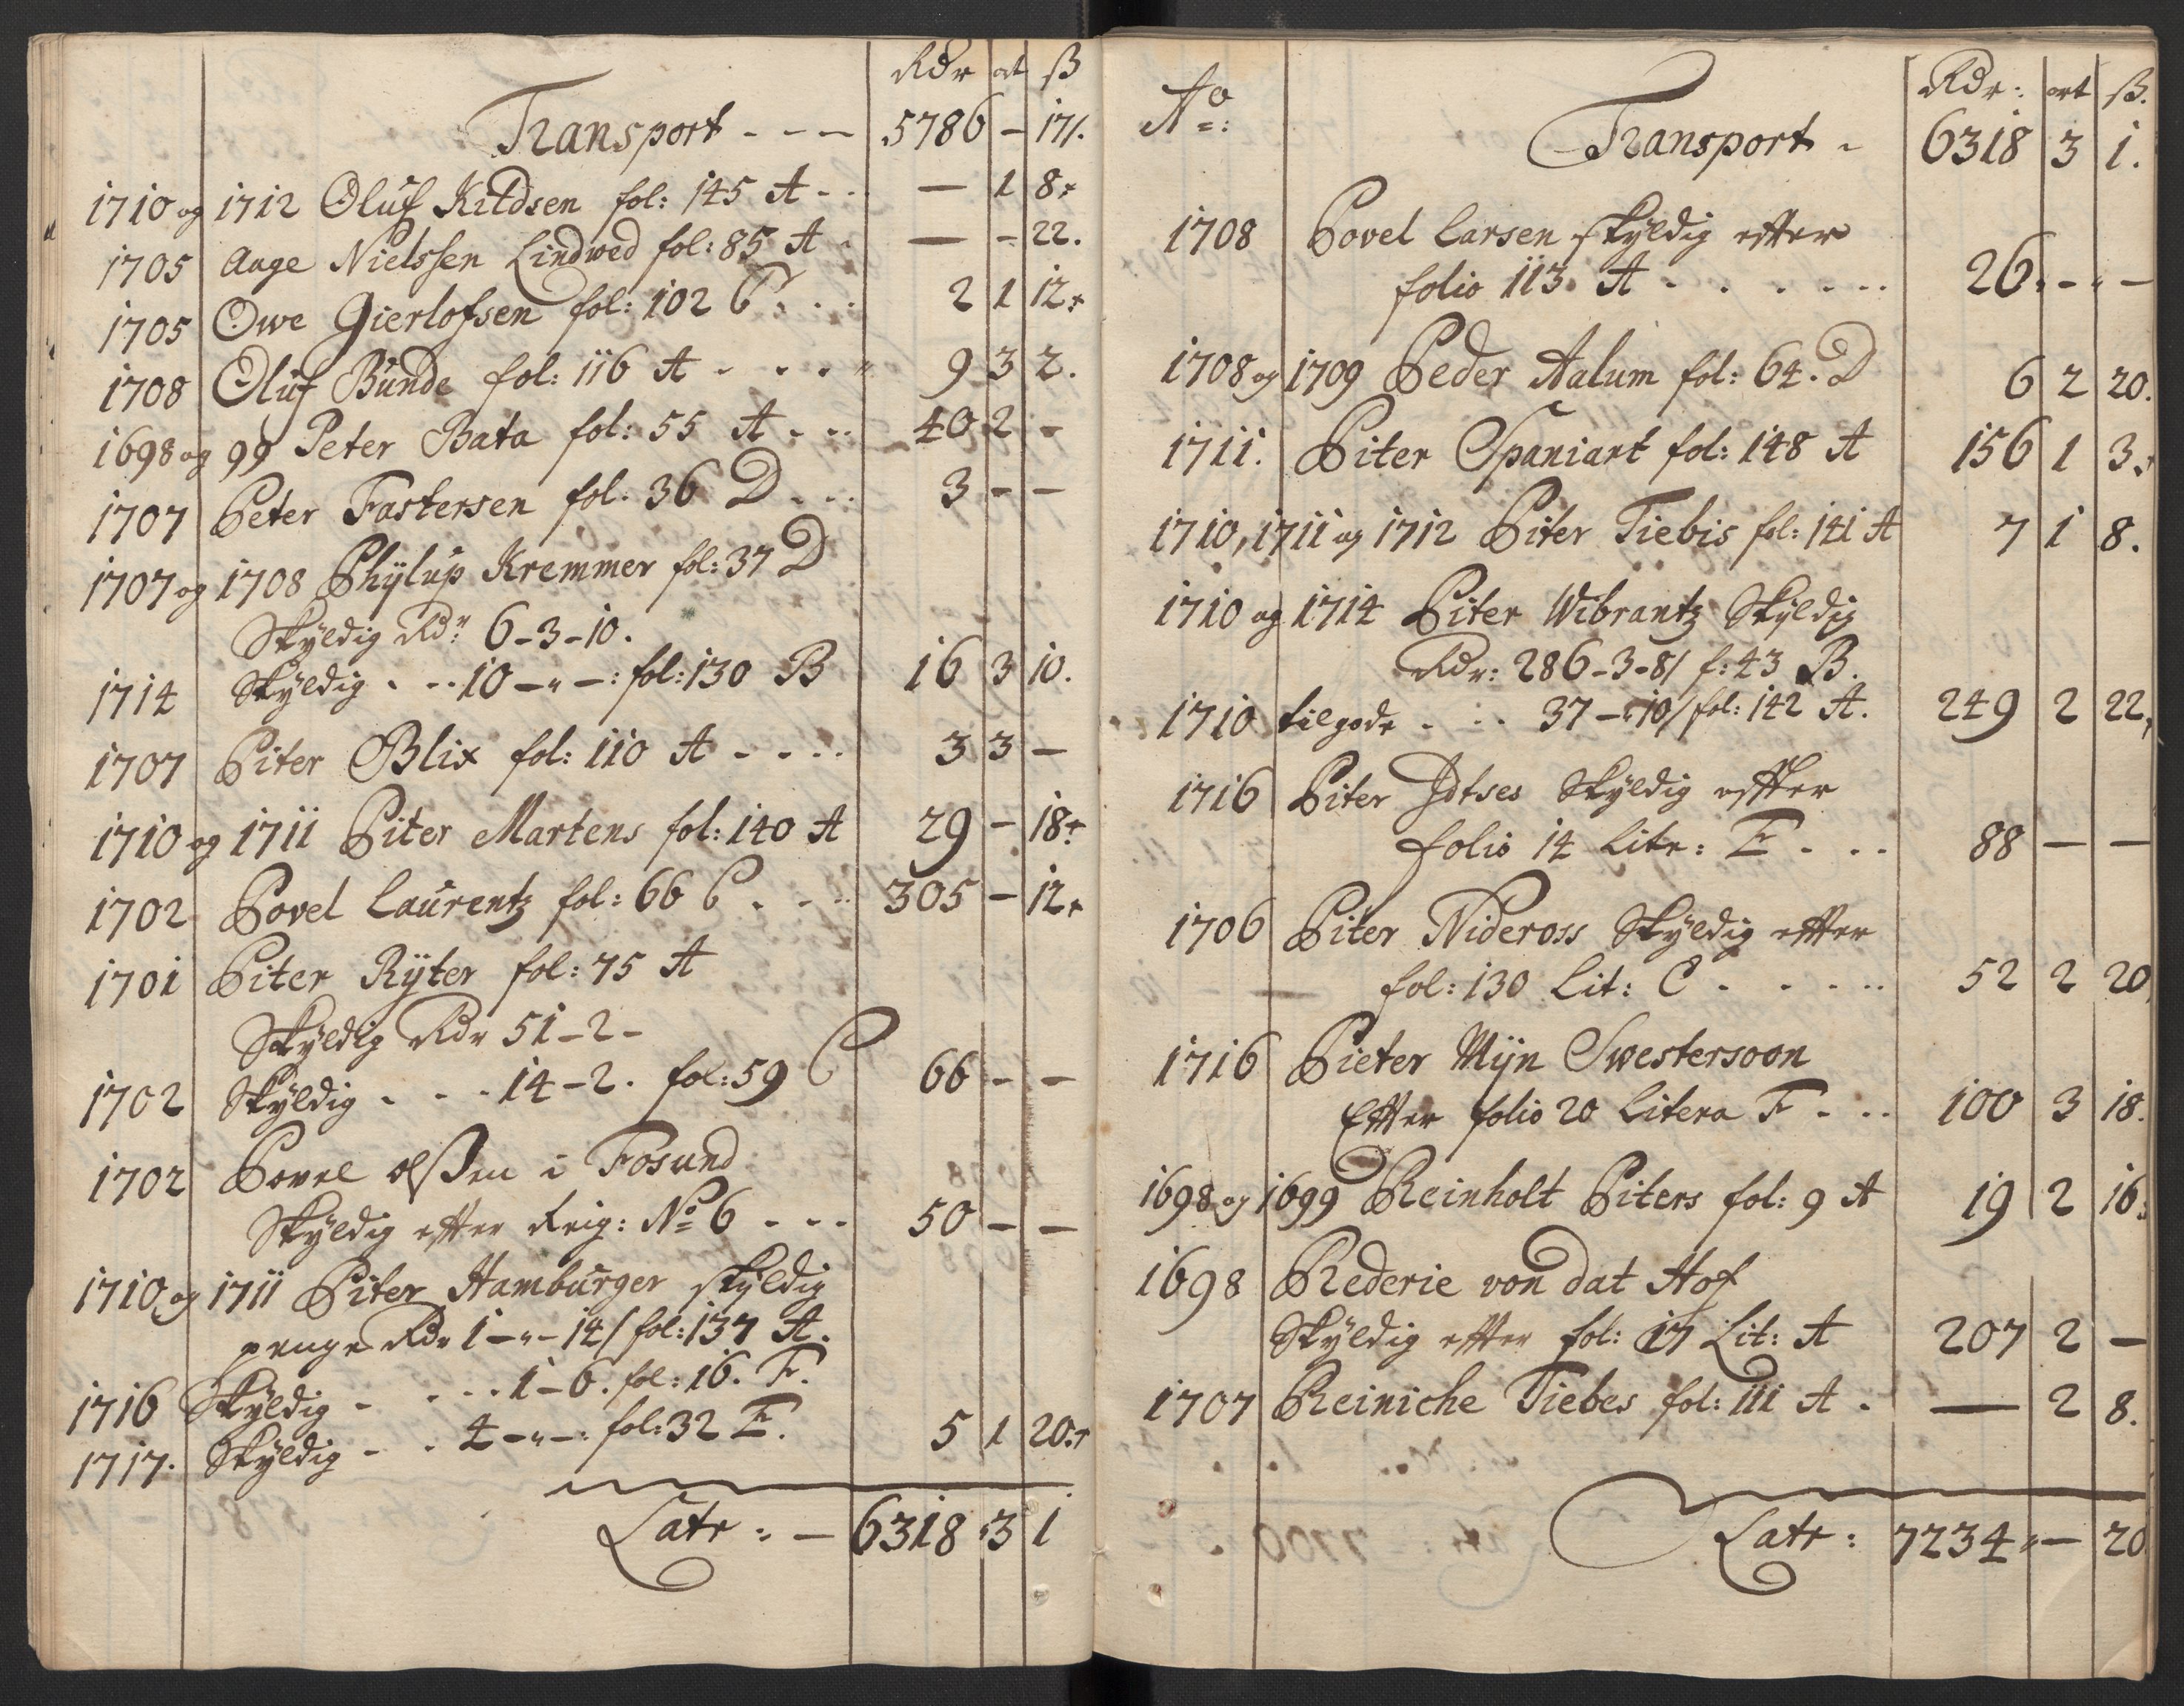 Rdr ort ß
Transport - - - 5786 - 17.
1710 og 1712 Oluf Kildsen fol: 145 A - - — 1 8.
1705 Aage Nielssen Lindwed fol: 85 A - — - 22.
1705 Owe Gierlofsen fol: 102 C . . . 2 1 12.
1708 Oluf Bunde fol: 116 A - . . . 9 3 2.
1698 og 99 Peter Bata fol: 55 A . . . 40 2 -
1707 Peter Fastersen fol. 36 D . . . 3 - -
1707 og 1708 Phÿlup Kremmer fol: 37 D
Skÿldig Rdr 6-3-10.
1714 Skÿldig . . . 10 - " - : fol: 130 B 16 3 10.
1707 Piter Blix fol: 110 A - - . . 3 3 -
1710 og 1711 Piter Martens fol: 140 A 29 - 18.
1702 Povel Laurentz fol: 66 C . - . . 305 - 12.
1701 Piter Rÿter fol: 75 A
Skÿldig Rdr 51-2-
1702 Skÿldig . . . 14-2. fol: 59 C 66 - -
1702 Povel olßen i Fosund
Skÿldig efter Reig: No 6 - - - 50 - -
1710 og 1711 Piter Hamburger skÿldig
penge Rdr 1-"-14/ fol: 137 A.
1716 Skÿldig - . . . 1-6. fol: 16. F.
1717. Skÿldig - . 4-"-: fol: 32 E. 5 1 20.
Latr: - 6318 3 1
Ao: Rdr: ort ß.
Transport - 6318 3 1.
1708 Povel Larsen skÿldig efter
folio 113. A - . . . . . 26. - -
1708 og 1709 Peder Aalum fol: 64. D 6 2 20.
1711. Piter Spaniart fol: 148 A 156 1 3.
1710, 1711 og 1712 Piter Tiebis fol: 141 A 7 1 8.
1710 og 1714 Piter Wibrantz Skÿldig
Rdr: 286-3-8/ f: 43 B.
1710 tilgode - . . 37-"-10/ fol: 142 A. 249 2 22.
1716 Piter Jdtses Skÿldig effter
folio 14 Litr: E . . . 88 - -
1706 Piter Nideross Skÿldig effter
fol: 130 Lit: C . . . . . 52 2 20
1716 Pieter Mÿn Swestersoon
Effter folio 20 Litera F - . . 100 3 18.
1698 og 1699 Reinholt Piters fol: 9 A 19 2 16.
1698 Rederie von dat Hof
Skÿldig effter fol: 17 Lit: A 207 2 -
1707 Reiniche Tiebes fol: 111 A . — 2 8.
Latr: 7234 " - 20